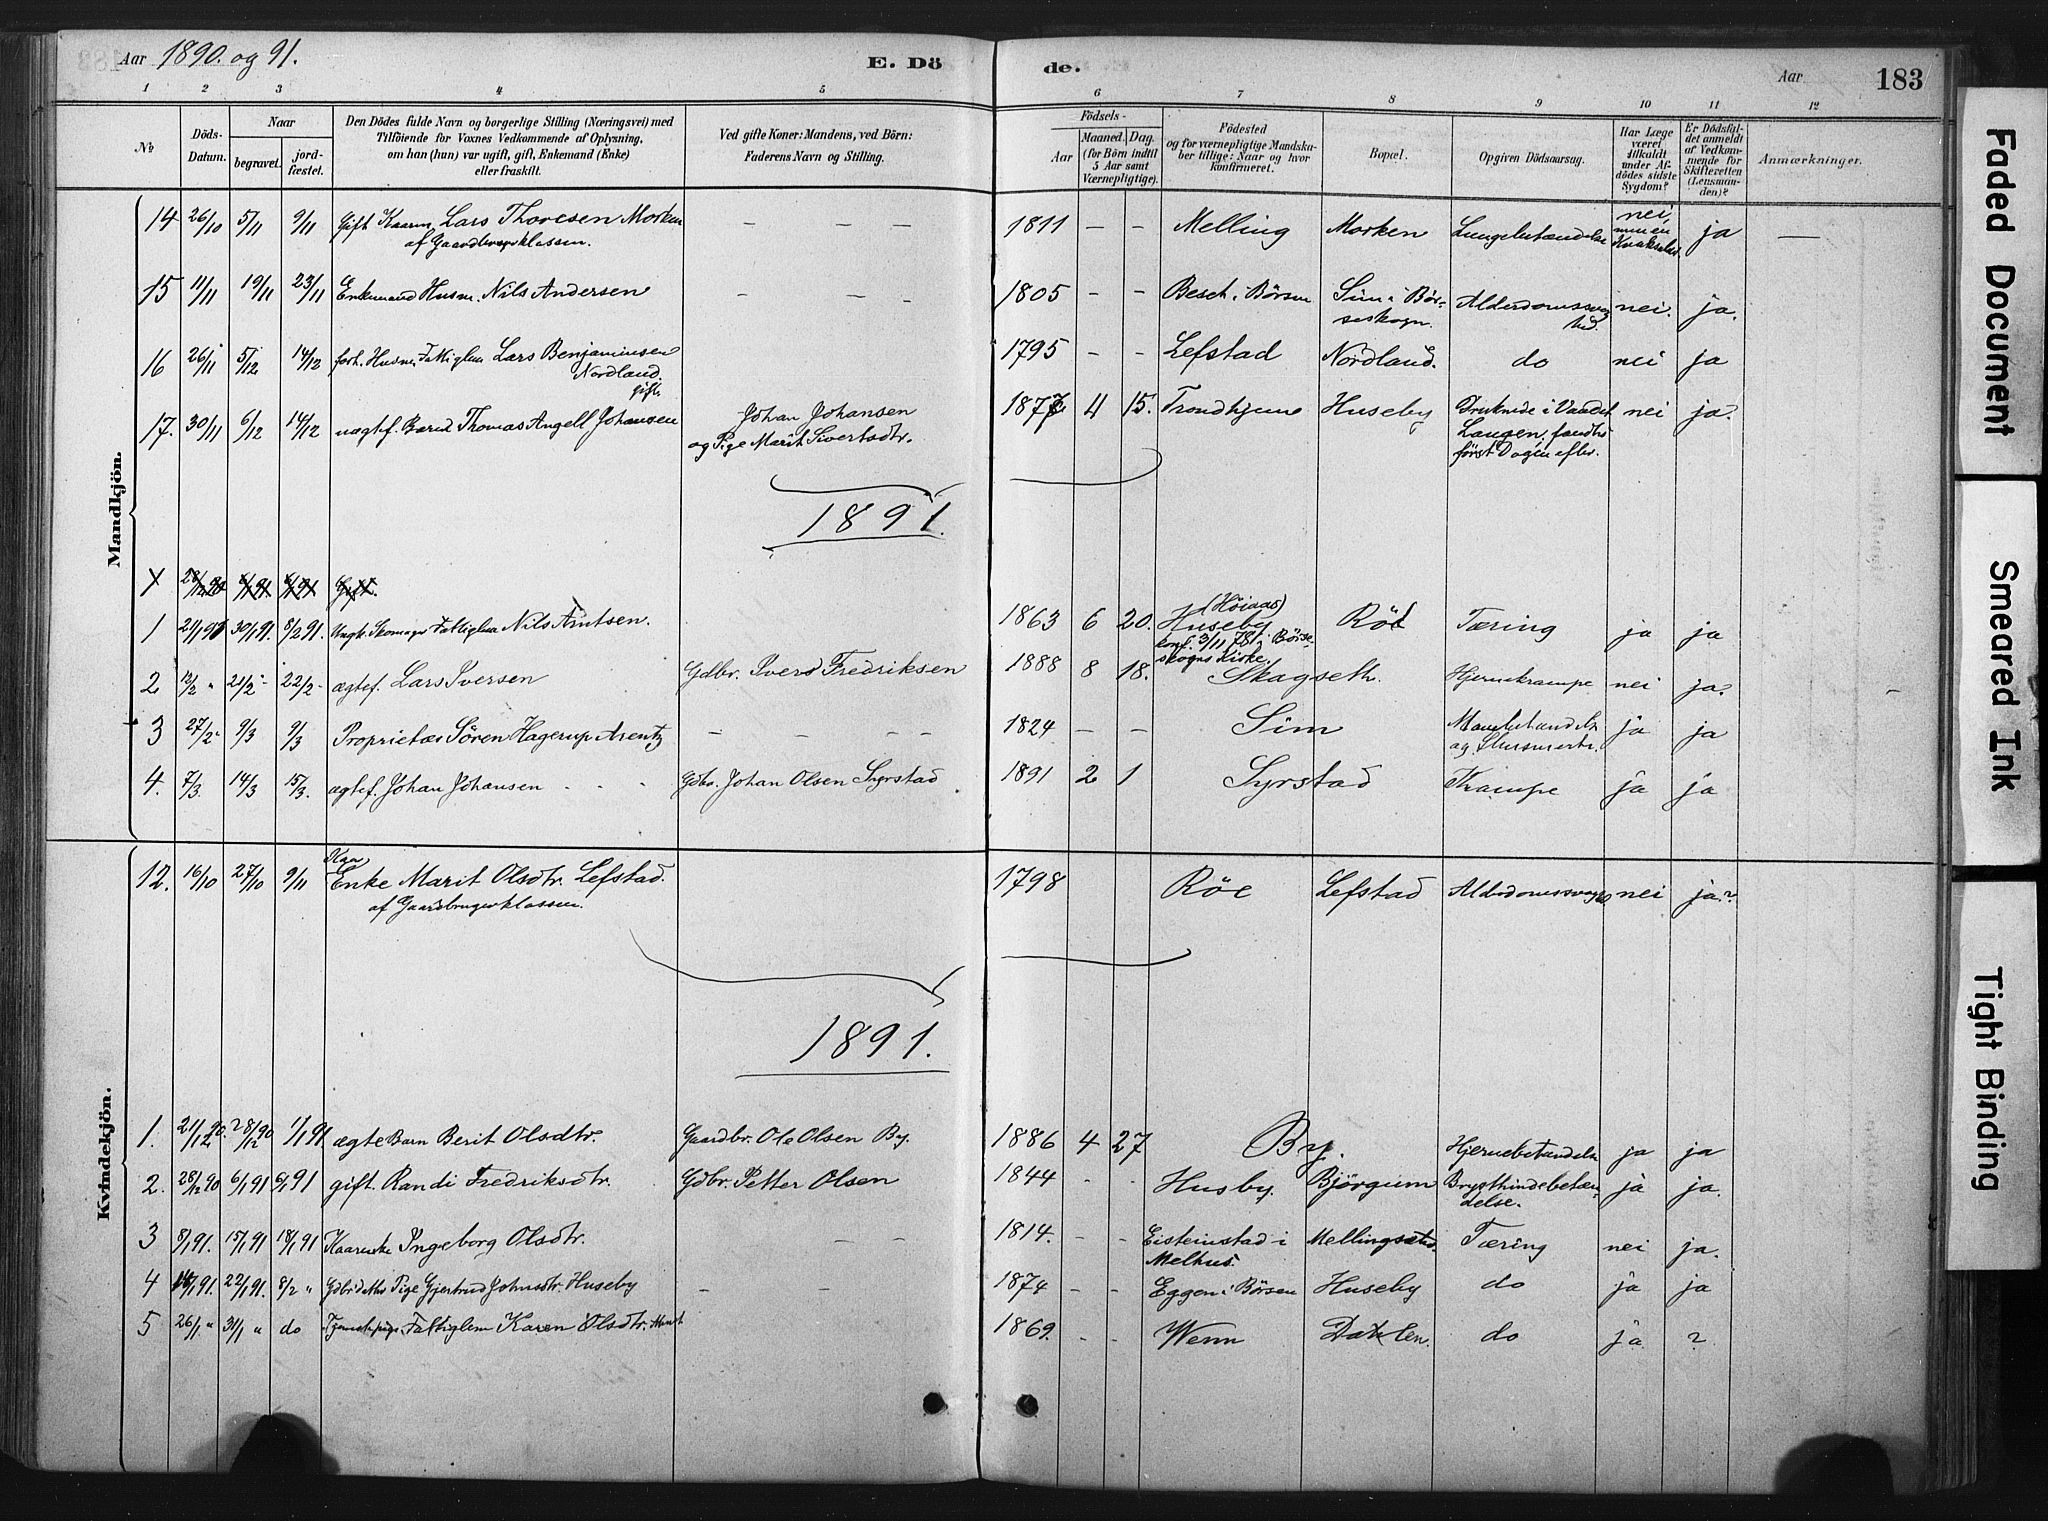 Aar 1890. og 91.
E. Dö
de.
Aar
183
1 2 3 4 5 6 7 8 9 10 11 12
No
Döds-
Datum.
Naar
begravet.
jord-
fæstet.
Den Dödes fulde Navn og borgerlige Stilling (Næringsvei) med
Tilföiende for Voxnes Vedkommende af Oplysning,
om han (hun) var ugift, gift, Enkemand (Enke)
eller fraskilt.
Ved gifte Koner: Mandens, ved Börn:
Faderens Navn og Stilling.
Födsels-
Aar
Maaned.
Dag.
(for Börn indtil
5 Aar samt
Værnepligtige).
Födested
og for værnepligtige Mandska-
ber tillige: Naar og hvor
konfirmeret.
Bopæl.
Opgiven Dödsaarsag.
Har Læge
været
tilkaldt
under Af-
dödes sidste
Sygdom?
Er Dödsfal-
det anmeldt
af Vedkom-
mende for
Skifteretten
(Lensman-
den)?
Anmærkninger.
Mandkjön.
14 26/10 5/11 9/11 Gift Kaarm. Lars Thoresen Morken — — — 1811 — — Melling Morken Lungebetændelse nei, ja —
af Gaardbrugerklassen.
15 11/11 19/11 23/11 Enkemand Husm. Nils Andersen — — — 1805 — — Beset i Börsen Sim i Bör-
seskogn. Alderdomssvag
hed. nei. ja.
16 26/11 5/12 14/12 forh. Husm. Fattiglem Lars Benjaminsen 1795 — — Lefstad Nordland. do nei ja
Nordland.
gift.
17. 30/11 6/12 14/12 uægtef. Barn Thomas Angell Johansen Johan Johansen 4 15. Trondhjem Huseby Druknede i Vandet nei ja.
og Pige Marit Sivertsdtr. Laugen, fandtes
först Dagen efter.
1891.
Gift.
1 30/1 91. 8/2 91. Ungk. Skomager Fattiglem Nils Arntsen. 1863 6 20. (Höiaas)
Huseby Röe Tæring ja ja
konf. 3/11 78 i Börse-
skogns Kirke.
2 12/2 " 21/2 22/2 ægtef. Lars Iversen Gdbr. Iver Fredriksen 1888 8 18. Skagseth. Hjernekrampe nei ja.
3 27/2 9/3 9/3 Proprietær Sören Hagerup Arentz — — — 1824 — — Sim Mavebetændelse ja ja
4. 7/3 14/3 15/3. ægtef. Johan Johansen Gdbr. Johan Olsen Syrstad 1891 2 1 Syrstad Krampe ja ja
Kvindekjön.
12. 16/10 27/10 9/11 Kaar
Enke Marit Olsdtr. Lefstad. 1798 Röe Lefstad nei ja.
af Gaardbrugerklassen.
1891.
1. 21/12 90. 28/12 90 1/1 91 ægte Barn Berit Olsdtr. Gaardbr. Ole Olsen By. 1886 4 27 By. Hjernebetændelse ja ja
2. 28/12 90 6/1 91 6/1 91 gift. Randi Fredriksdtr. Gdbr. Petter Olsen 1844 - - Husby. Björgum Brysthindebetæn-
delse. ja ja.
3 8/1 91. 15/1 91 18/1 91 Kaarenke Ingeborg Olsdtr. — — 1814. - - Eisteinstad i
Melhus. Tæring nei ja.
4 22/1 91. 8/2 " Gdbr.datter Pige Gjertrud Johnsdtr. Huseby — — 1874 - - Eggen i Börsen Huseby do ja ja
5 26/1 " 31/1 " do Tjenestepige, Fattiglem Karen Olsdtr. 1869. - - Wenn Dahlen. do ja ?
Faded Document
Smeared Ink
Tight Binding